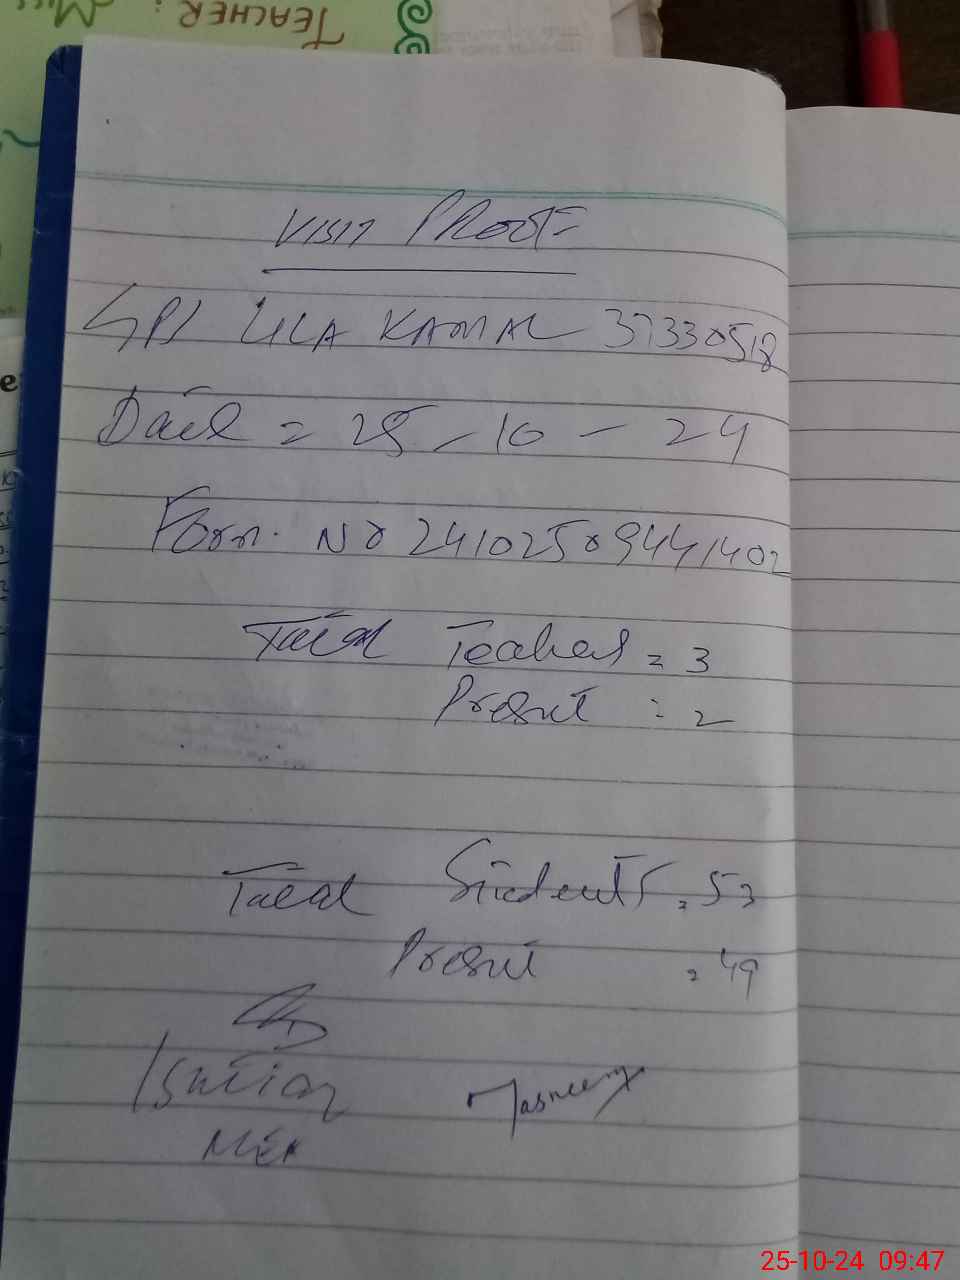 TEACHER: Miss
VISIT PROOF
GPS LILA KAMAL 37330518
Date = 25-10-24
Form. No 24102509441402
Total Teacher = 3
Present = 2
Total Students = 53
Present = 49
Ishtiaq
Tasneem
MEA
25-10-24 09:47